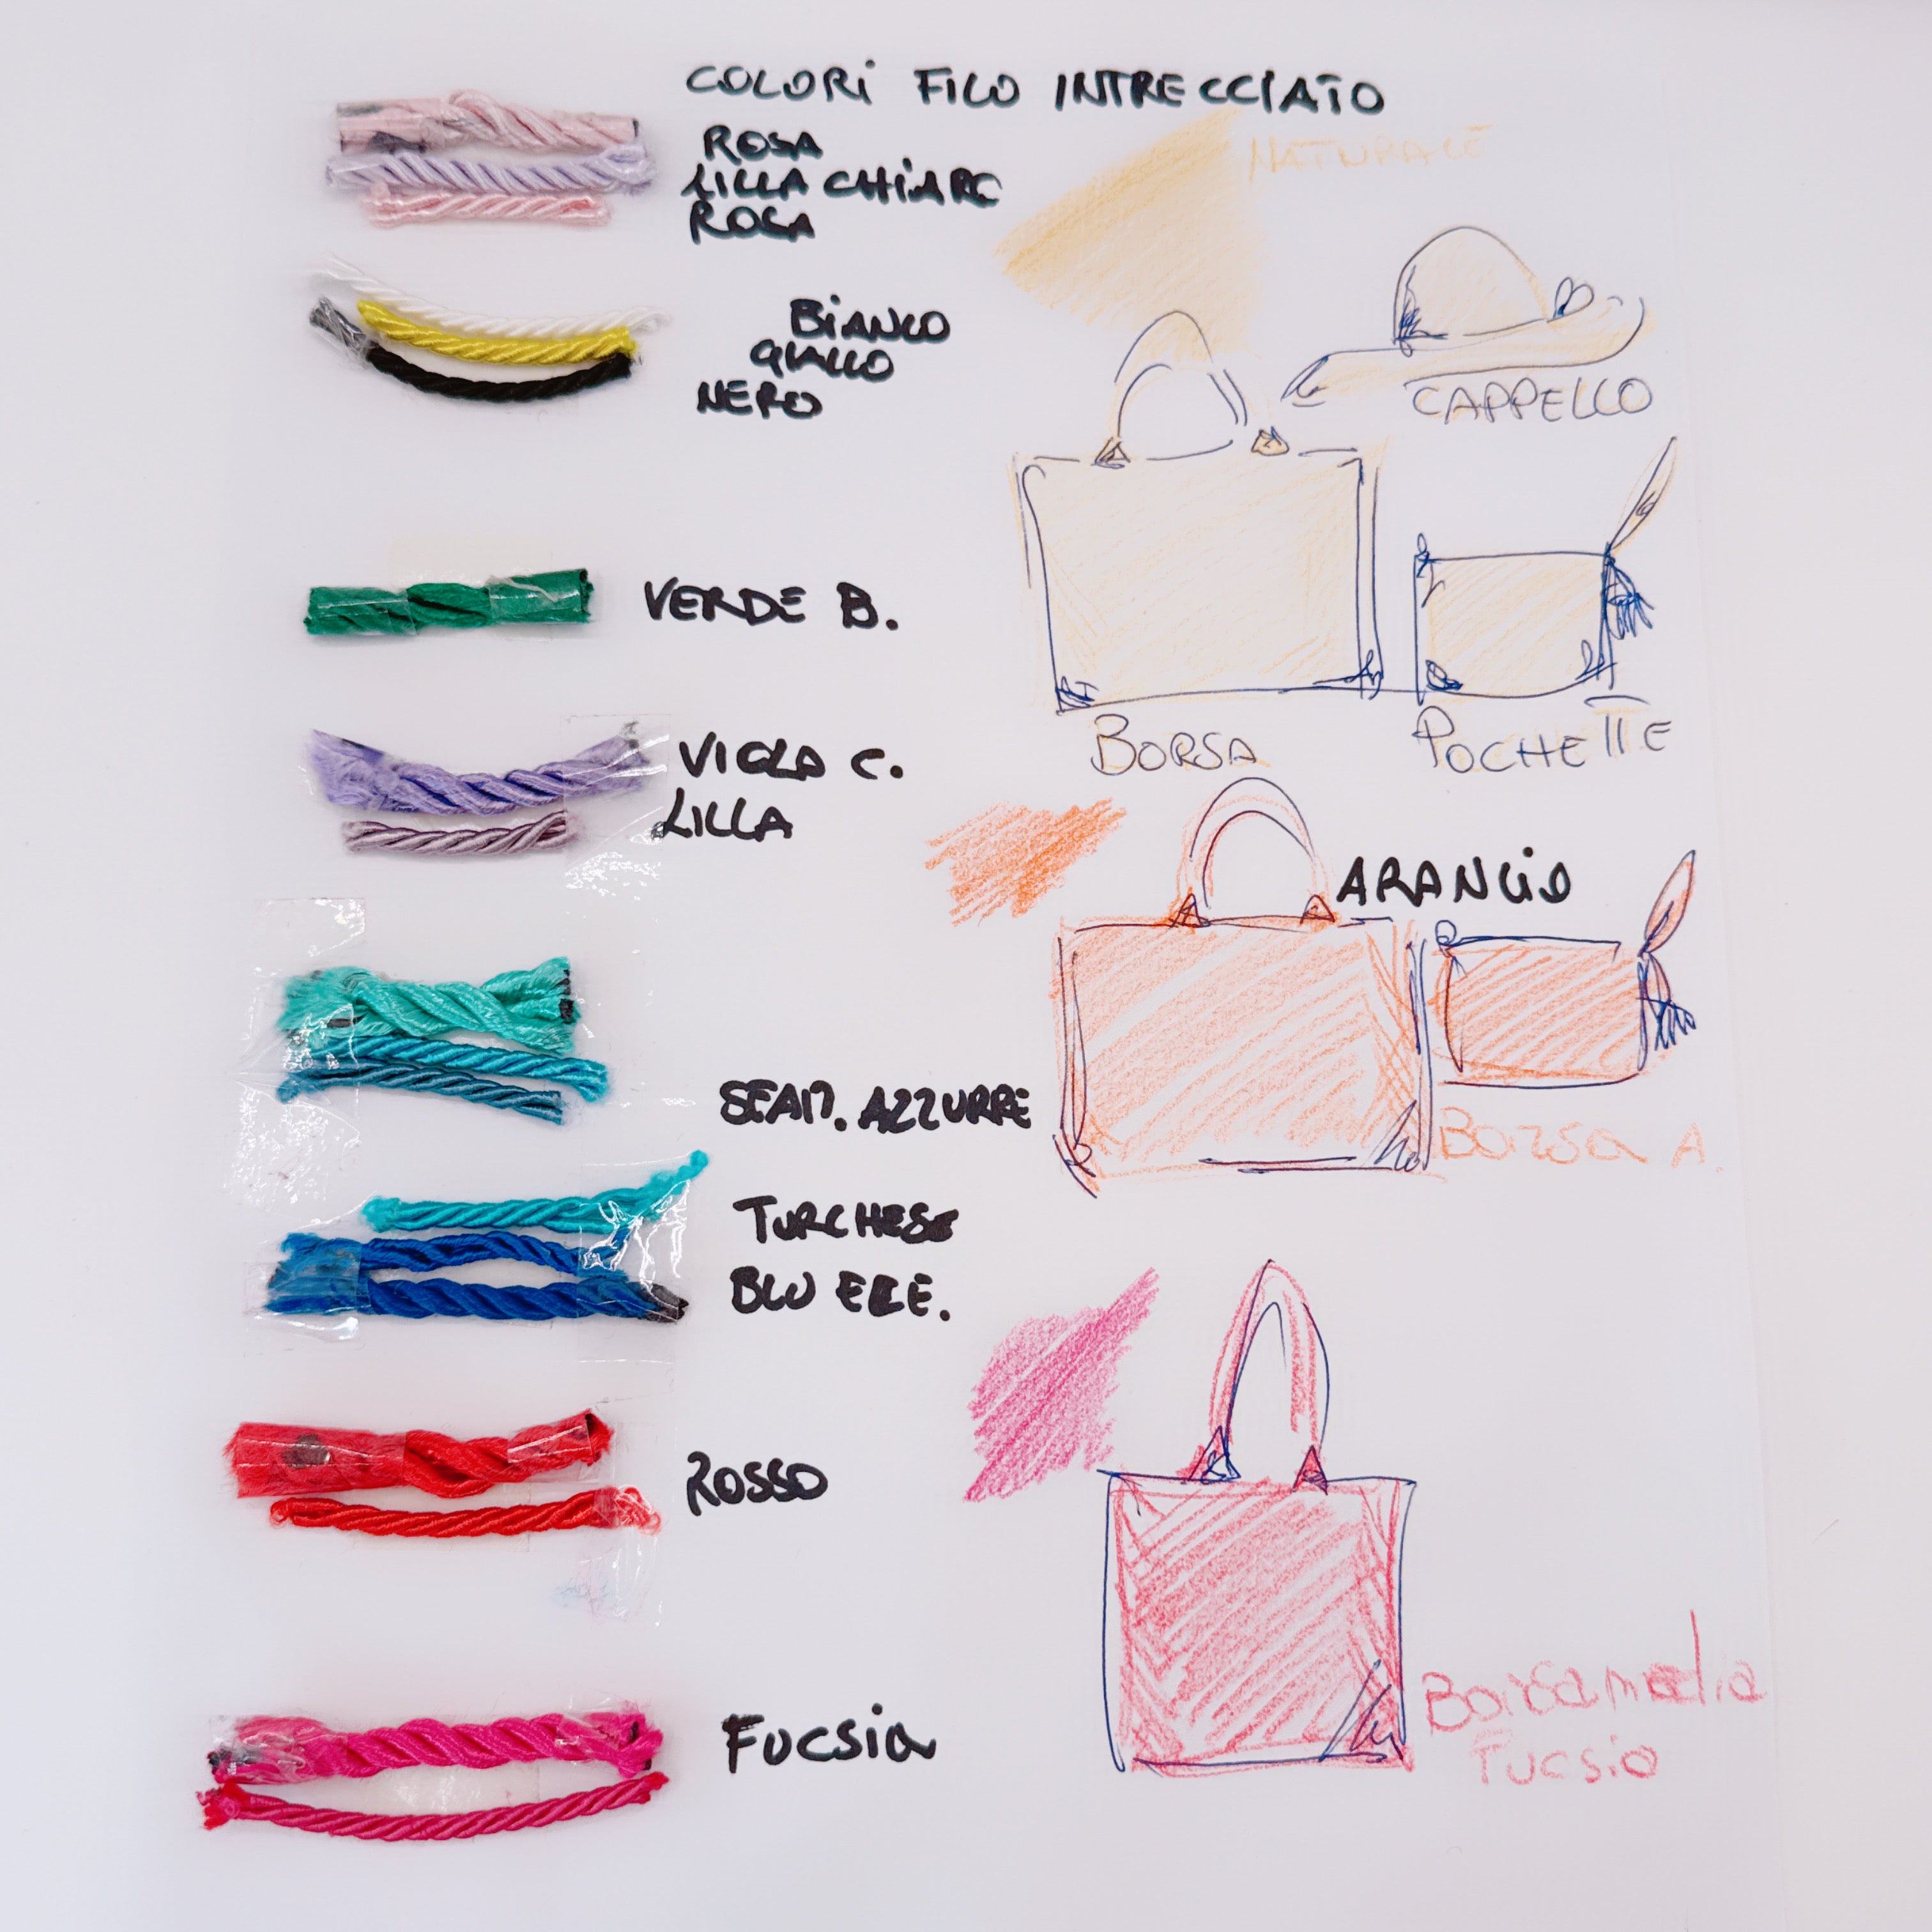 COLORI FILO INTRECCIATO
ROSA
LILLA CHIARO
ROSA
NATURALE
BIANCO
GIALLO
NERO
CAPPELLO
VERDE B.
BORSA
POCHETTE
VIOLA C.
LILLA
ARANCIO
SFAM. AZZURRE
BORSA A.
TURCHESE
BLU ELE.
ROSSO
Borsa media
Fucsia
FUCSIA